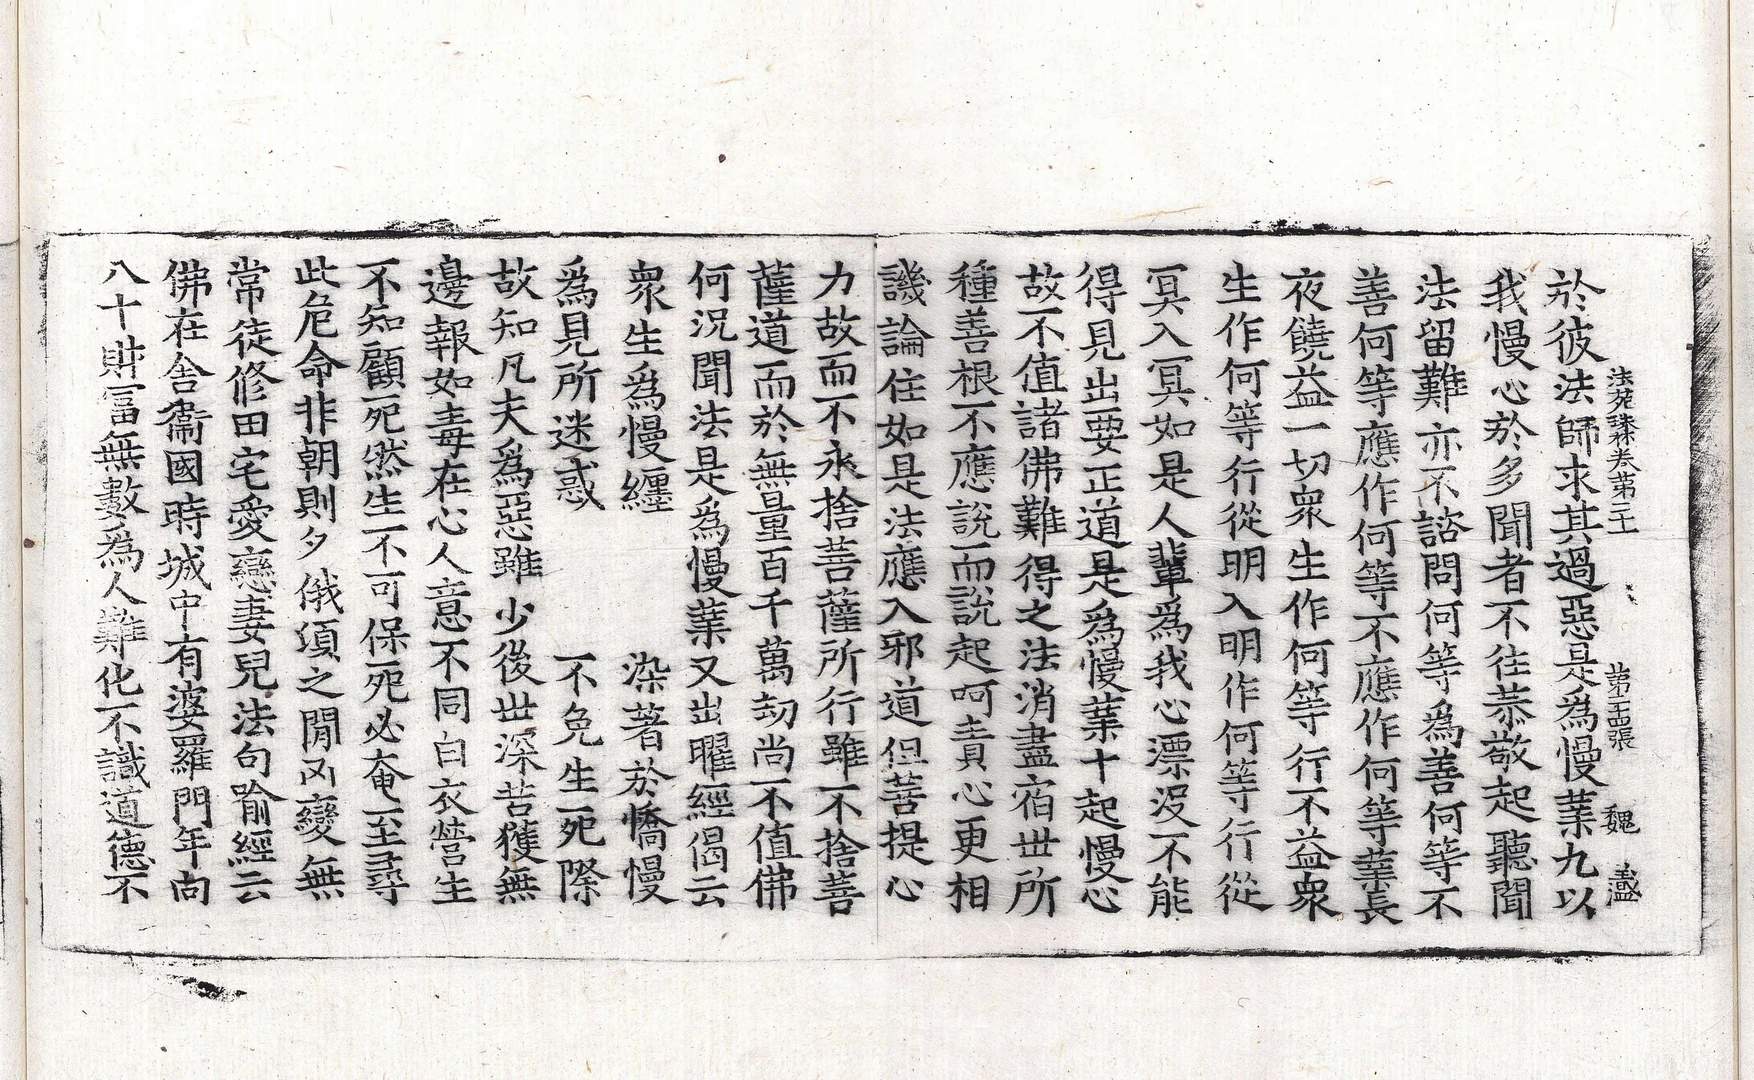 法苑珠林卷第二十 第十四張 魏 盖
於彼法師求其過惡是爲慢業九以
我慢心於多聞者不往恭敬起聽聞
法留難亦不諮問何等爲善何等不
善何等應作何等不應作何等業長
夜饒益一切衆生作何等行不益衆
生作何等行從明入明作何等行從
冥入冥如是人輩爲我心漂没不能
得見出要正道是爲慢業十起慢心
故不值諸佛難得之法消盡宿世所
種善根不應說而說起呵責心更相
譏論住如是法應入邪道但菩提心
力故而不永捨菩薩所行雖不捨菩
薩道而於無量百千萬劫尚不值佛
何況聞法是爲慢業又出曜經偈云
衆生爲慢纏 染著於憍慢
爲見所迷惑 不免生死際
故知凡夫爲惡雖少後世深苦獲無
邊報如毒在心人意不同白衣營生
不知顧死然生不可保死必奄至尋
此危命非朝則夕俄須之間凶變無
常徒修田宅愛戀妻兒法句喻經云
佛在舍衞國時城中有婆羅門年向
八十財富無數爲人難化不識道德不